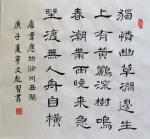 獨憐幽草澗邊生
上有黃鸝深樹鳴
春潮帶雨晚來急
壄渡無人舟自橫
唐韋應物滁州西澗
庚子夏寧文彪習書